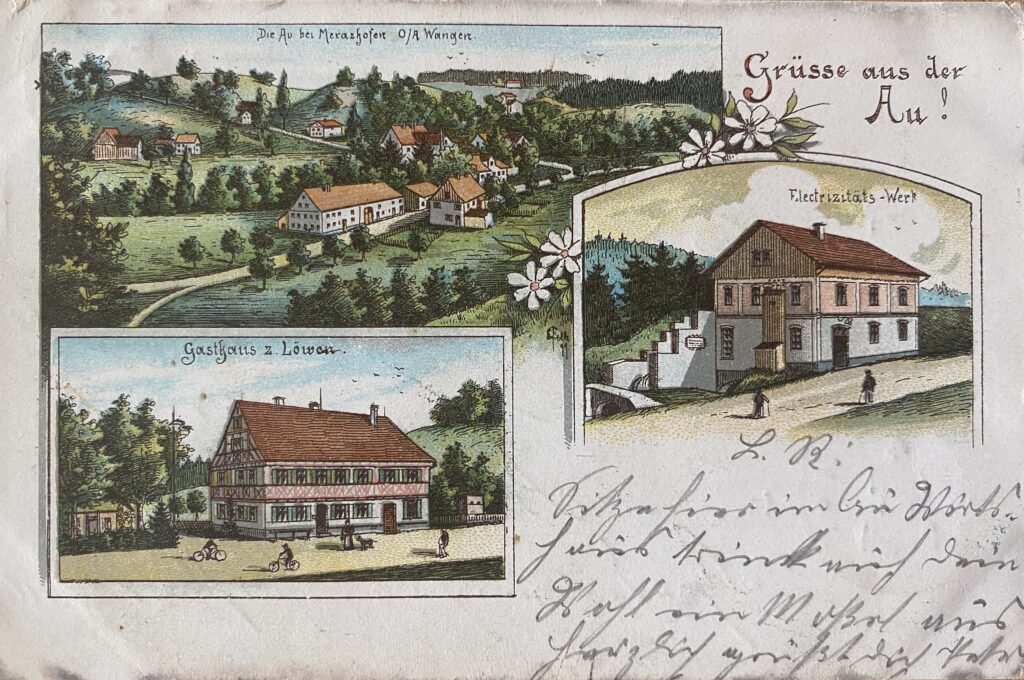 Die Au bei Merazhofen O/A Wangen.
Grüsse aus der
Au!
Electrizitäts-Werk
Gasthaus z. Löwen.
L. R:
Sitze hier im Au Wirts-
haus trink auf dein
Wohl ein Maßel aus
Herzlich grüßt dich Peter